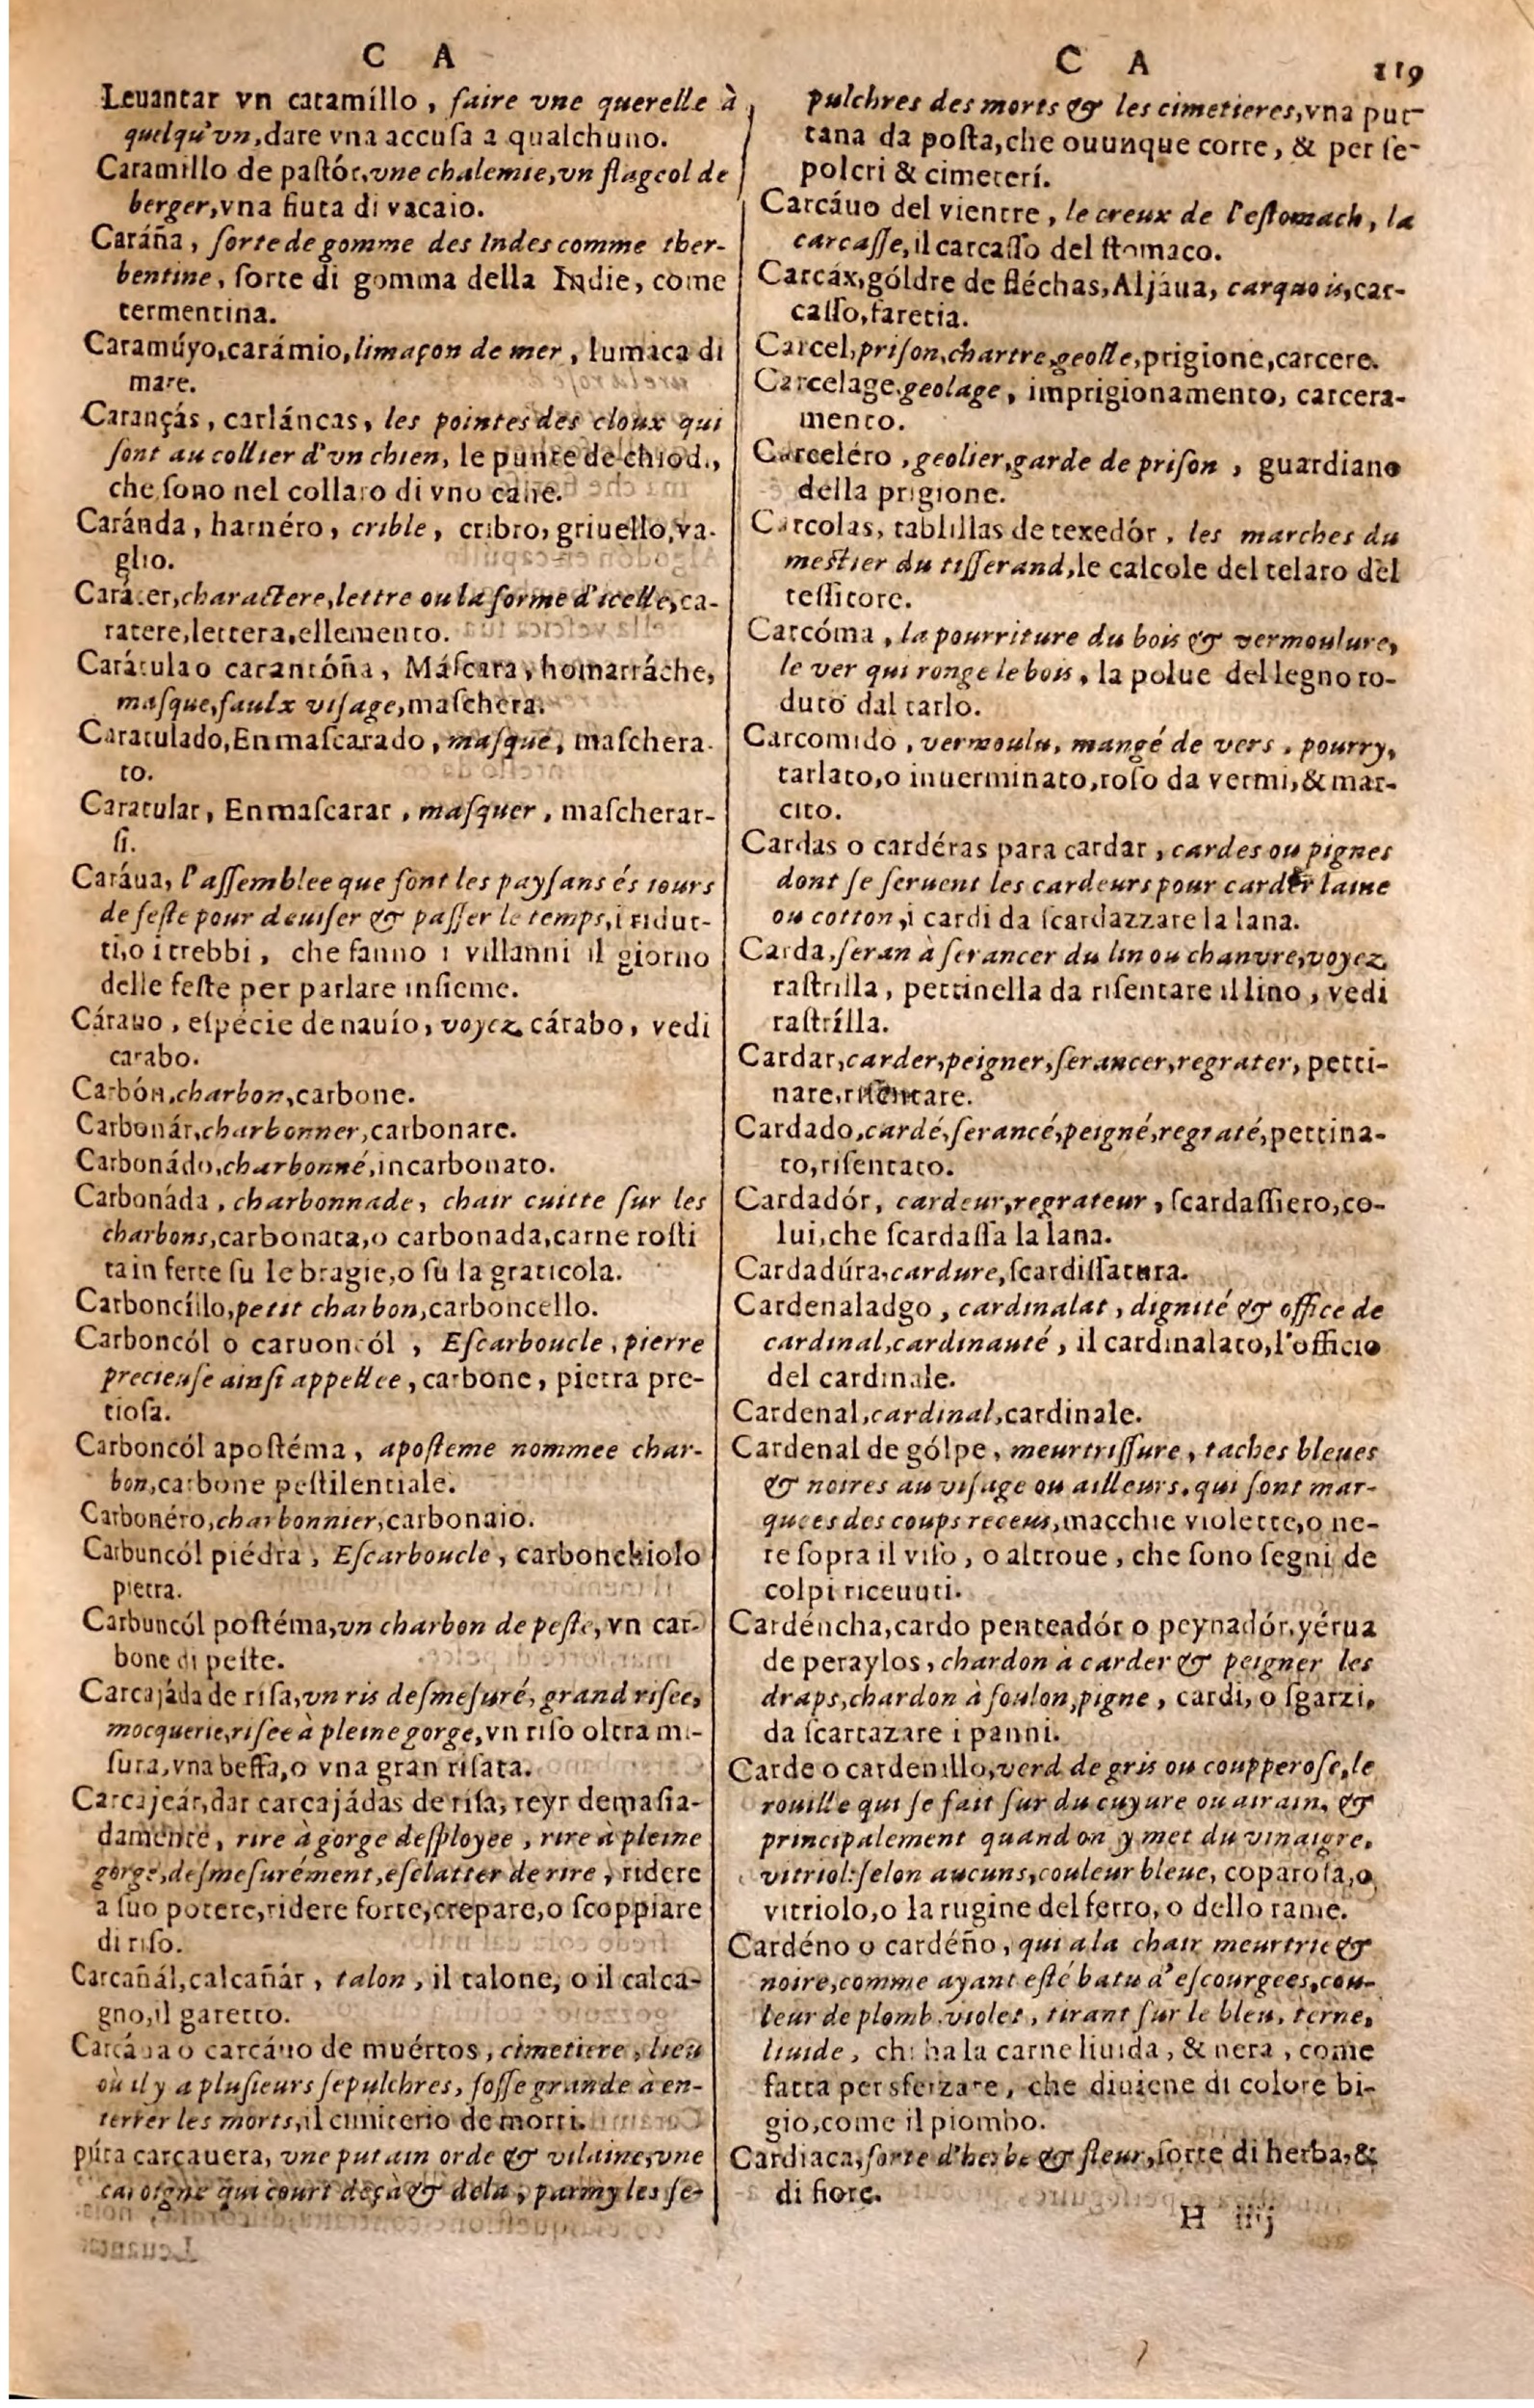 C A
Leuantar vn caramíllo, faire vne querelle à
quelqu'vn, dare vna accuſa a qualchuno.
Caramillo de paſtór, vne chalemie, vn flageol de
berger, vna fiuta di vacaio.
Caráña, ſorte de gomme des Indes comme ther-
bentine, ſorte di gomma della Indie, come
termentina.
Caramúyo, carámio, limaçon de mer, lumaca di
mare.
Carançás, carláncas, les pointes des cloux qui
ſont au collier d'vn chien, le punte de chiod.,
che ſono nel collaro di vno cane.
Caránda, harnéro, crible, cribro, griuello, va-
glio.
Carácter, charactere, lettre ou la forme d'icelle, ca-
ratere, lettera, ellemento.
Carátula o carantóña, Máſcara, homarráche,
maſque, faulx viſage, maſchera.
Caratulado, Enmaſcarado, maſqué, maſchera-
to.
Caratular, Enmaſcarar, maſquer, maſcherar-
ſi.
Caráua, l'aſſemblee que font les payſans és iours
de feſte pour deuiſer & paſſer le temps, i ridut-
ti, o i trebbi, che fanno i villanni il giorno
delle feſte per parlare inſieme.
Cárauo, eſpécie de nauío, voyez cárabo, vedi
carabo.
Carbón, charbon, carbone.
Carbonár, charbonner, carbonare.
Carbonádo, charbonné, incarbonato.
Carbonáda, charbonnade, chair cuitte ſur les
charbons, carbonata, o carbonada, carne roſti
ta in ferte ſu le bragie, o ſu la graticola.
Carboncíllo, petit charbon, carboncello.
Carboncól o caruoncól, Eſcarboucle, pierre
precieuſe ainſi appellee, carbone, pietra pre-
tioſa.
Carboncól apoſtéma, apoſteme nommee char-
bon, carbone peſtilentiale.
Carbonéro, charbonnier, carbonaio.
Carbuncól piédra, Eſcarboucle, carbonchiolo
pietra.
Carbuncól poſtéma, vn charbon de peſte, vn car-
bone di peſte.
Carcajáda de riſa, vn ris deſmeſuré, grand riſee,
mocquerie, riſee à pleine gorge, vn riſo oltra mi-
ſura, vna beffa, o vna gran riſata.
Carcajeár, dar carcajádas de riſa, reyr demaſia-
damente, rire à gorge deſployee, rire à pleine
gorge, deſmeſurément, eſclatter de rire, ridere
a ſuo potere, ridere forte, crepare, o ſcoppiare
di riſo.
Carcañál, calcañár, talon, il talone, o il calca-
gno, il garetto.
Carcáua o carcáuo de muértos, cimetiere, lieu
où il y a pluſieurs ſepulchres, foſſe grande à en-
terrer les morts, il cimiterio de morti.
púta carcauera, vne putain orde & vilaine, vne
caroigne qui court deçà & dela, parmy les ſe-
C A 119
pulchres des morts & les cimetieres, vna put-
tana da poſta, che ouunque corre, & per ſe-
polcri & cimeterí.
Carcáuo del vientre, le creux de l'eſtomach, la
carcaſſe, il carcaſſo del ſtomaco.
Carcáx, góldre de fléchas, Aljáua, carquois, car-
caſſo, faretia.
Carcel, priſon, chartre, geolle, prigione, carcere.
Carcelage, geolage, imprigionamento, carcera-
mento.
Carceléro, geolier, garde de priſon, guardiano
della prigione.
Carcolas, tablillas de texedór, les marches du
meſtier du tiſſerand, le calcole del telaro del
teſſitore.
Carcóma, la pourriture du bois & vermoulure,
le ver qui ronge le bois, la polue del legno ro-
duto dal tarlo.
Carcomido, vermoulu, mangé de vers, pourry,
tarlato, o inuerminato, roſo da vermi, & mar-
cito.
Cardas o cardéras para cardar, cardes ou pignes
dont ſe ſeruent les cardeurs pour carder laine
ou cotton, i cardi da ſcardazzare la lana.
Carda, ſeran à ſerancer du lin ou chanvre, voyez
raſtrilla, pettinella da riſentare il lino, vedi
raſtrílla.
Cardar, carder, peigner, ſerancer, regrater, petti-
nare, riſentare.
Cardado, cardé, ſerancé, peigné, regraté, pettina-
to, riſentato.
Cardadór, cardeur, regrateur, ſcardaſſiero, co-
lui, che ſcardaſſa la lana.
Cardadúra, cardure, ſcardiſſatura.
Cardenaladgo, cardinalat, dignité & office de
cardinal, cardinauté, il cardinalato, l'officio
del cardinale.
Cardenal, cardinal, cardinale.
Cardenal de gólpe, meurtriſſure, taches bleues
& noires au viſage ou ailleurs, qui ſont mar-
quees des coups receus, macchie violette, o ne-
re ſopra il viſo, o altroue, che ſono ſegni de
colpi riceuuti.
Cardéncha, cardo penteadór o peynadór, yérua
de peraylos, chardon à carder & peigner les
draps, chardon à foulon, pigne, cardi, o ſgarzi,
da ſcartazare i panni.
Carde o cardenillo, verd de gris ou coupperoſe, le
rouille qui ſe fait ſur du cuyure ou airain, &
principalement quand on y met du vinaigre,
vitriol: ſelon aucuns, couleur bleue, coparoſa, o
vitriolo, o la rugine del ferro, o dello rame.
Cardéno o cardéño, qui a la chair meurtrie &
noire, comme ayant eſté batu d'eſcourgees, cou-
leur de plomb, violet, tirant ſur le bleu, terne,
liuide, chi ha la carne liuida, & nera, come
fatta per sferzare, che diuiene di colore bi-
gio, come il piombo.
Cardiaca, ſorte d'herbe & fleur, ſorte di herba, &
di fiore.
H iiij